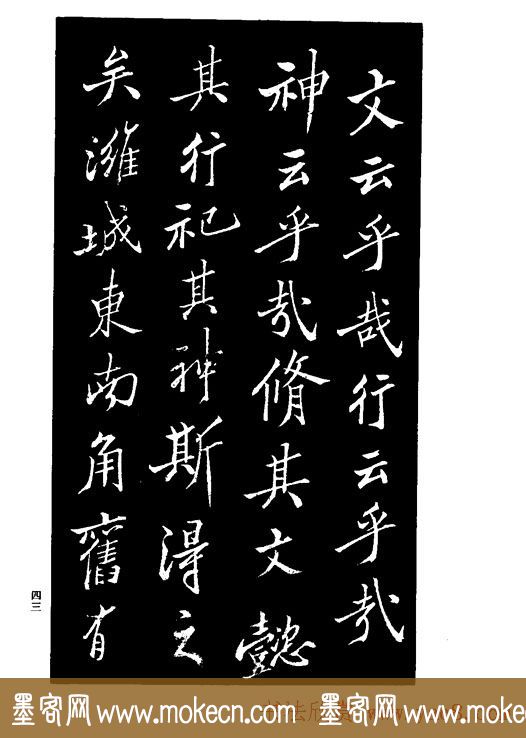 文云乎哉行云乎哉
神云乎哉脩其文懿
其行祀其神斯得之
矣濰城東南角舊有
四三
墨客网 www.mokecn.com 墨客网 www.mokecn.com 墨客网